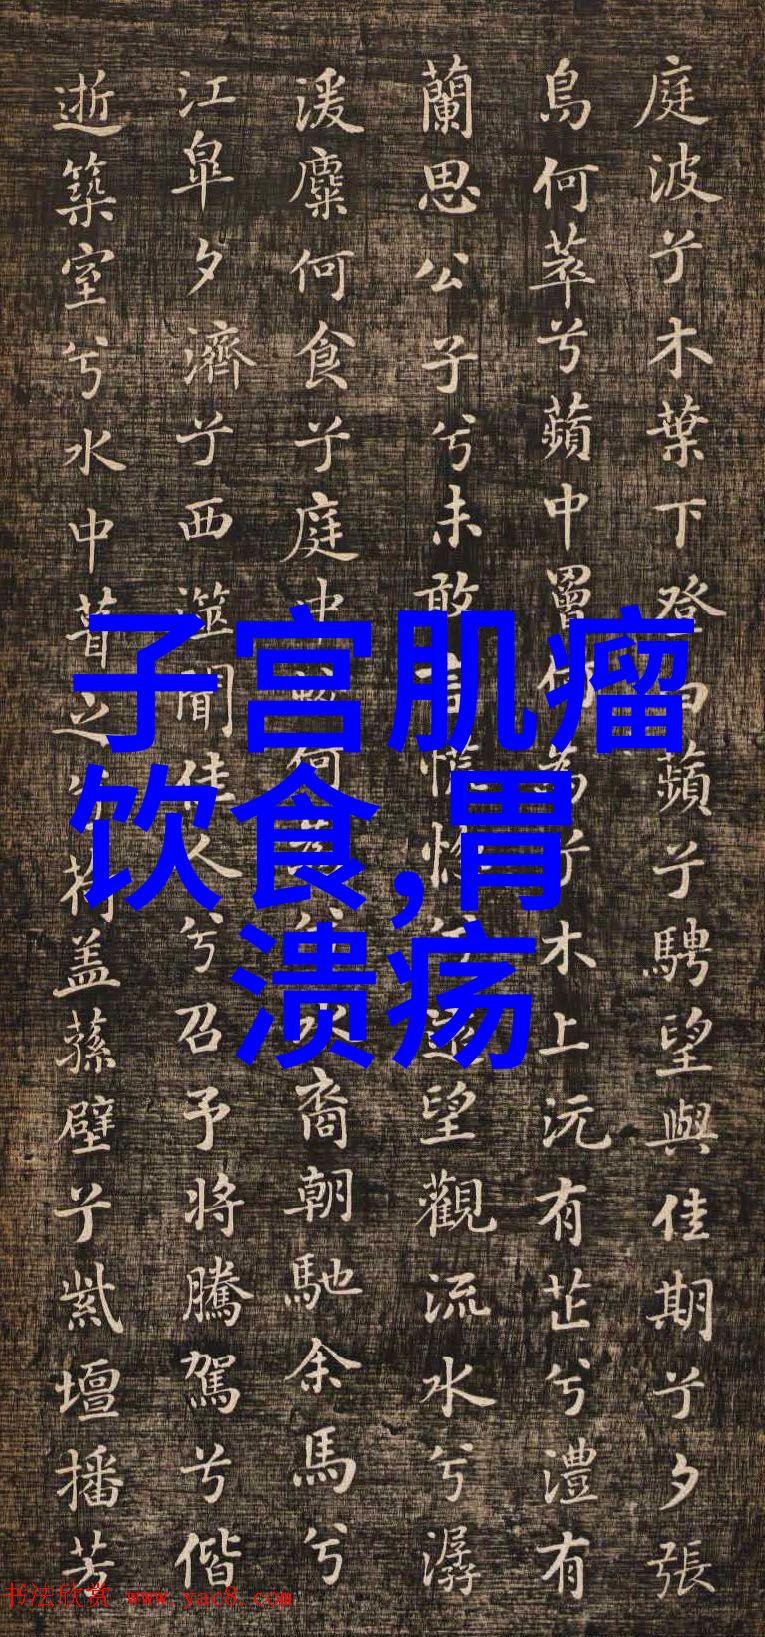 庭波兮木葉下登白蘋兮騁望與佳期兮夕張
鳥何萃兮蘋中罾何為兮木上沅有芷兮澧有
蘭思公子兮未敢言慌惚兮遠望觀流水兮潺
湲麋何食兮庭中蛟何為兮水裔朝馳余馬兮
江皐夕濟兮西澨聞佳人兮召予將騰駕兮偕
逝築室兮水中葺之以荷盖蓀壁兮紫壇播芳
子宫肌瘤
饮食,胃
溃疡
书法欣赏 www.yac8.com